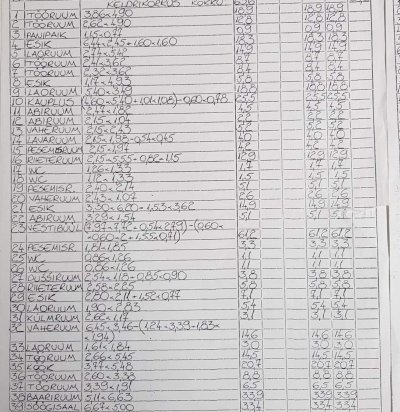 KELDRIKORRUS KOKKU
1 TÖÖRUUM 3,86×4,90 18,9 18,9 18,9
2 TÖÖRUUM 2,62×4,90 12,8 12,8 12,8
3 PANIPAIK 1,15×0,77 0,9 0,9 0,9
4 ESIK 6,44×2,45+1,60×1,60 18,3 18,3 18,3
5 LAORUUM 2,74×5,42 14,9 14,9 14,9
6 TÖÖRUUM 2,41×3,62 8,7 8,7 8,7
7 TÖÖRUUM 2,32×3,62 8,4 8,4 8,4
8 ESIK 1,17×4,93 5,8 5,8 5,8
9 LAORUUM 5,40×3,49 18,8 18,8 18,8
10 KAUPLUS (4,60×5,40+1,01×1,08)-0,60×0,78 25,5 25,5 25,5
11 ABIRUUM 2,47×1,82 4,5 4,5 4,5
12 ABIRUUM 2,15×1,04 2,2 2,2 2,2
13 VAHERUUM 2,15×2,43 5,2 5,2 5,2
14 LAVARUUM 2,15×1,98-0,54×0,45 4,0 4,0 4,0
15 PESEMISRUUM 2,15×1,94 4,2 4,2 4,2
16 RIIETERUUM 2,15×5,55+0,82×1,15 12,9 12,9 12,9
17 WC 1,26×1,33 1,7 1,7 1,7
18 WC 1,12×1,33 1,5 1,5 1,5
19 PESEMISR. 2,40×2,14 5,1 5,1 5,1
20 VAHERUUM 2,43×1,07 2,6 2,6 2,6
21 ESIK 3,30×6,20-1,53×3,62 14,9 14,9 14,9
22 ABIRUUM 3,29×1,54 5,1 5,1 5,1
23 VESTIBÜÜL (7,97×7,72+0,54×2,79)-(0,60×
×0,60×2+1,55×0,71) 61,2 61,2 61,2
24 PESEMISR. 1,81×1,85 3,3 3,3 3,3
25 WC 0,86×1,26 1,1 1,1 1,1
26 WC 0,86×1,26 1,1 1,1 1,1
27 DUŠŠIRUUM 2,54×1,18+0,85×0,90 3,8 3,8 3,8
28 RIIETERUUM 2,58×2,25 5,8 5,8 5,8
29 ESIK 2,80×2,11+1,52×0,77 7,1 7,1 7,1
30 LAORUUM 1,90×2,83 5,4 5,4 5,4
31 KÜLMRUUM 2,62×1,17 3,1 3,1 3,1
32 VAHERUUM 6,45×3,46-(1,24×3,39+1,83×
×1,94) 14,6 14,6 14,6
33 LAORUUM 1,61×1,84 3,0 3,0 3,0
34 TÖÖRUUM 2,66×5,45 14,5 14,5 14,5
35 KÖÖK 3,77×5,48 20,7 20,7 20,7
36 TÖÖRUUM 2,60×3,38 8,8 8,8 8,8
37 TÖÖRUUM 3,39×1,91 6,5 6,5 6,5
38 BAARIRUUM 5,11×6,63 33,9 33,9 33,9
39 SÖÖGISAAL 6,67×5,00 33,4 33,4 33,4